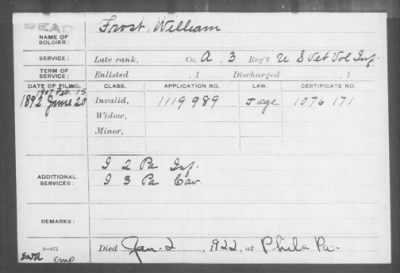 DEAD
NAME OF SOLDIER: Frost, William
SERVICE: Late rank, Co. A, 3 Reg't U S Vet Vol Inf.
TERM OF SERVICE: Enlisted , 1 Discharged , 1
DATE OF FILING. CLASS. APPLICATION NO. LAW. CERTIFICATE NO.
1907 Feb. 15
1892 June 20 Invalid, 1119989 J age 1076171
Widow,
Minor,
ADDITIONAL SERVICES: I 2 Pa Inf.
I 3 Pa Cav
REMARKS:
Died Jan. 2, 1922, at Phila Pa.